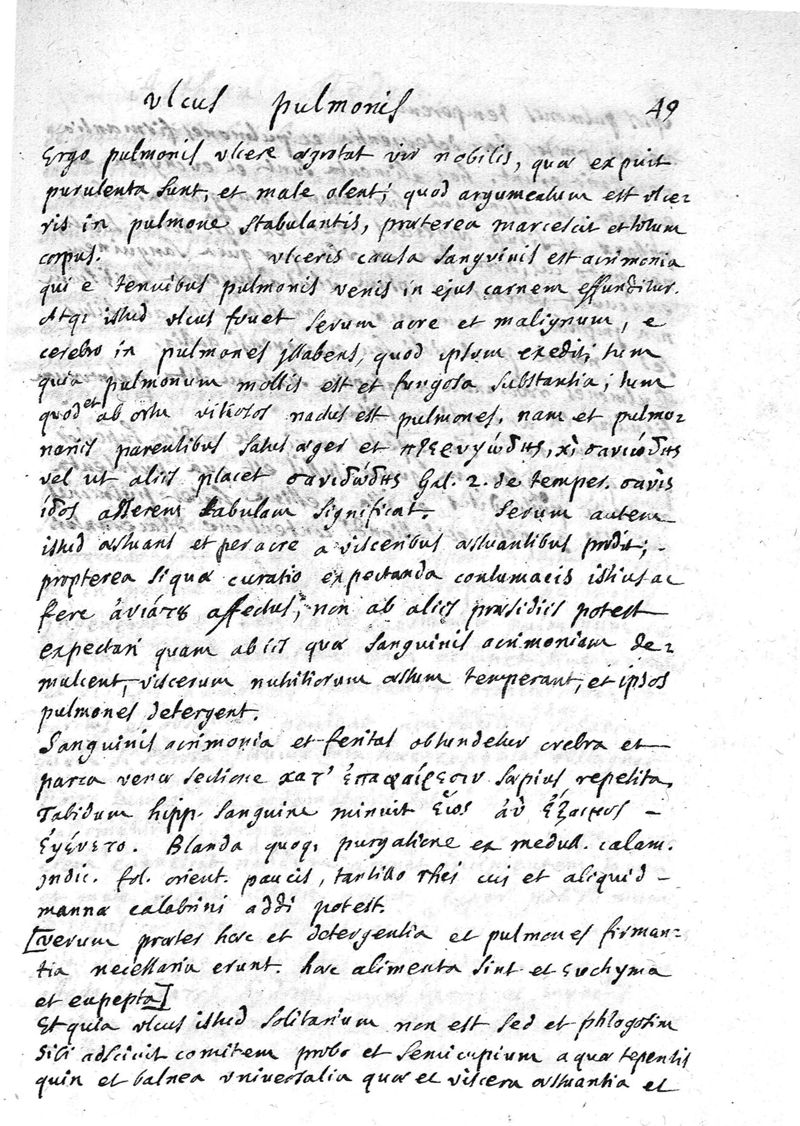 vlcus pulmonis 49
Ergo pulmonis vlcere ægrotat vir nobilis, quæ expuit
purulenta sunt, et male olent; quod argumentum est vlce-
ris in pulmone stabulantis, præterea marcescit et totum
corpus. vlceris causa sanguinis est acrimonia
qui e tenuibus pulmonis venis in ejus carnem effunditur.
Atq; istud vlcus fovet serum acre et malignum, e
cerebro in pulmones illabens, quod ipsum exedit; tum
quia pulmonum mollis est et fungosa substantia; tum
quod et ab ortu vitiosos nactus est pulmones, nam et pulmo-
naris parentibus satus æger et πτερυγώδης, κὶ σανιώδης
vel ut aliis placet σανιδώδης Gal. 2. de temper. σανὶς
ίδος asserem tabulam significat. Serum autem
istud æstuans et peracre a visceribus æstuantibus prodit;
propterea siqua curatio expectanda contumacis istius ac
fere ἀνιάτου affectus, non ab aliis præsidiis potest
expectari quam ab iis quæ sanguinis acrimoniam de-
mulcent, viscerum nutritiorum æstum temperant, et ipsos
pulmones detergent.
Sanguinis acrimonia et feritas obtundetur crebra et
parca venæ sectione κατ' ἐπαφαίρεσιν sæpius repetita,
Tabidum hipp. sanguine minuit ἕως ἂν ἔξαιμος
ἐγένετο. Blanda quoq; purgatione ex medull. calam.
indic. fol. orient. paucis, tantillo rhei cui et aliquid
mannæ calabrini addi potest.
[verum præter hæc et detergentia et pulmones firman-
tia necessaria erunt. hæc alimenta sint et euchyma
et eupepta]
Et quia vlcus istud solitarium non est sed et phlogosim
sibi adscivit comitem probo et semicupium aquæ tepentis
quin et balnea vniversalia quæ et viscera æstuantia et